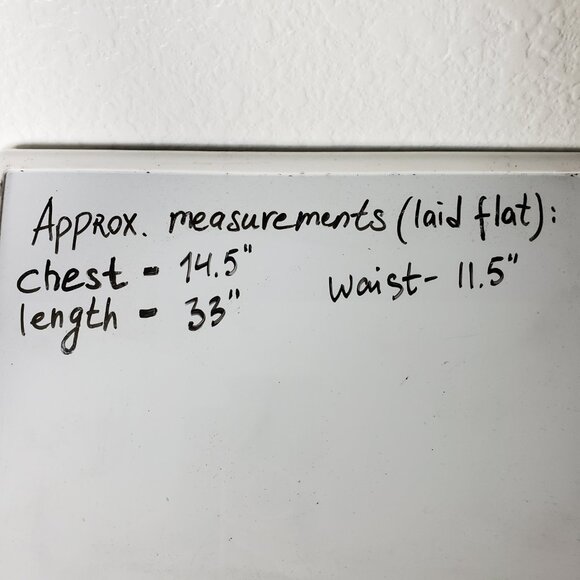 Approx. measurements (laid flat):
chest - 14.5" waist - 11.5"
length - 33"